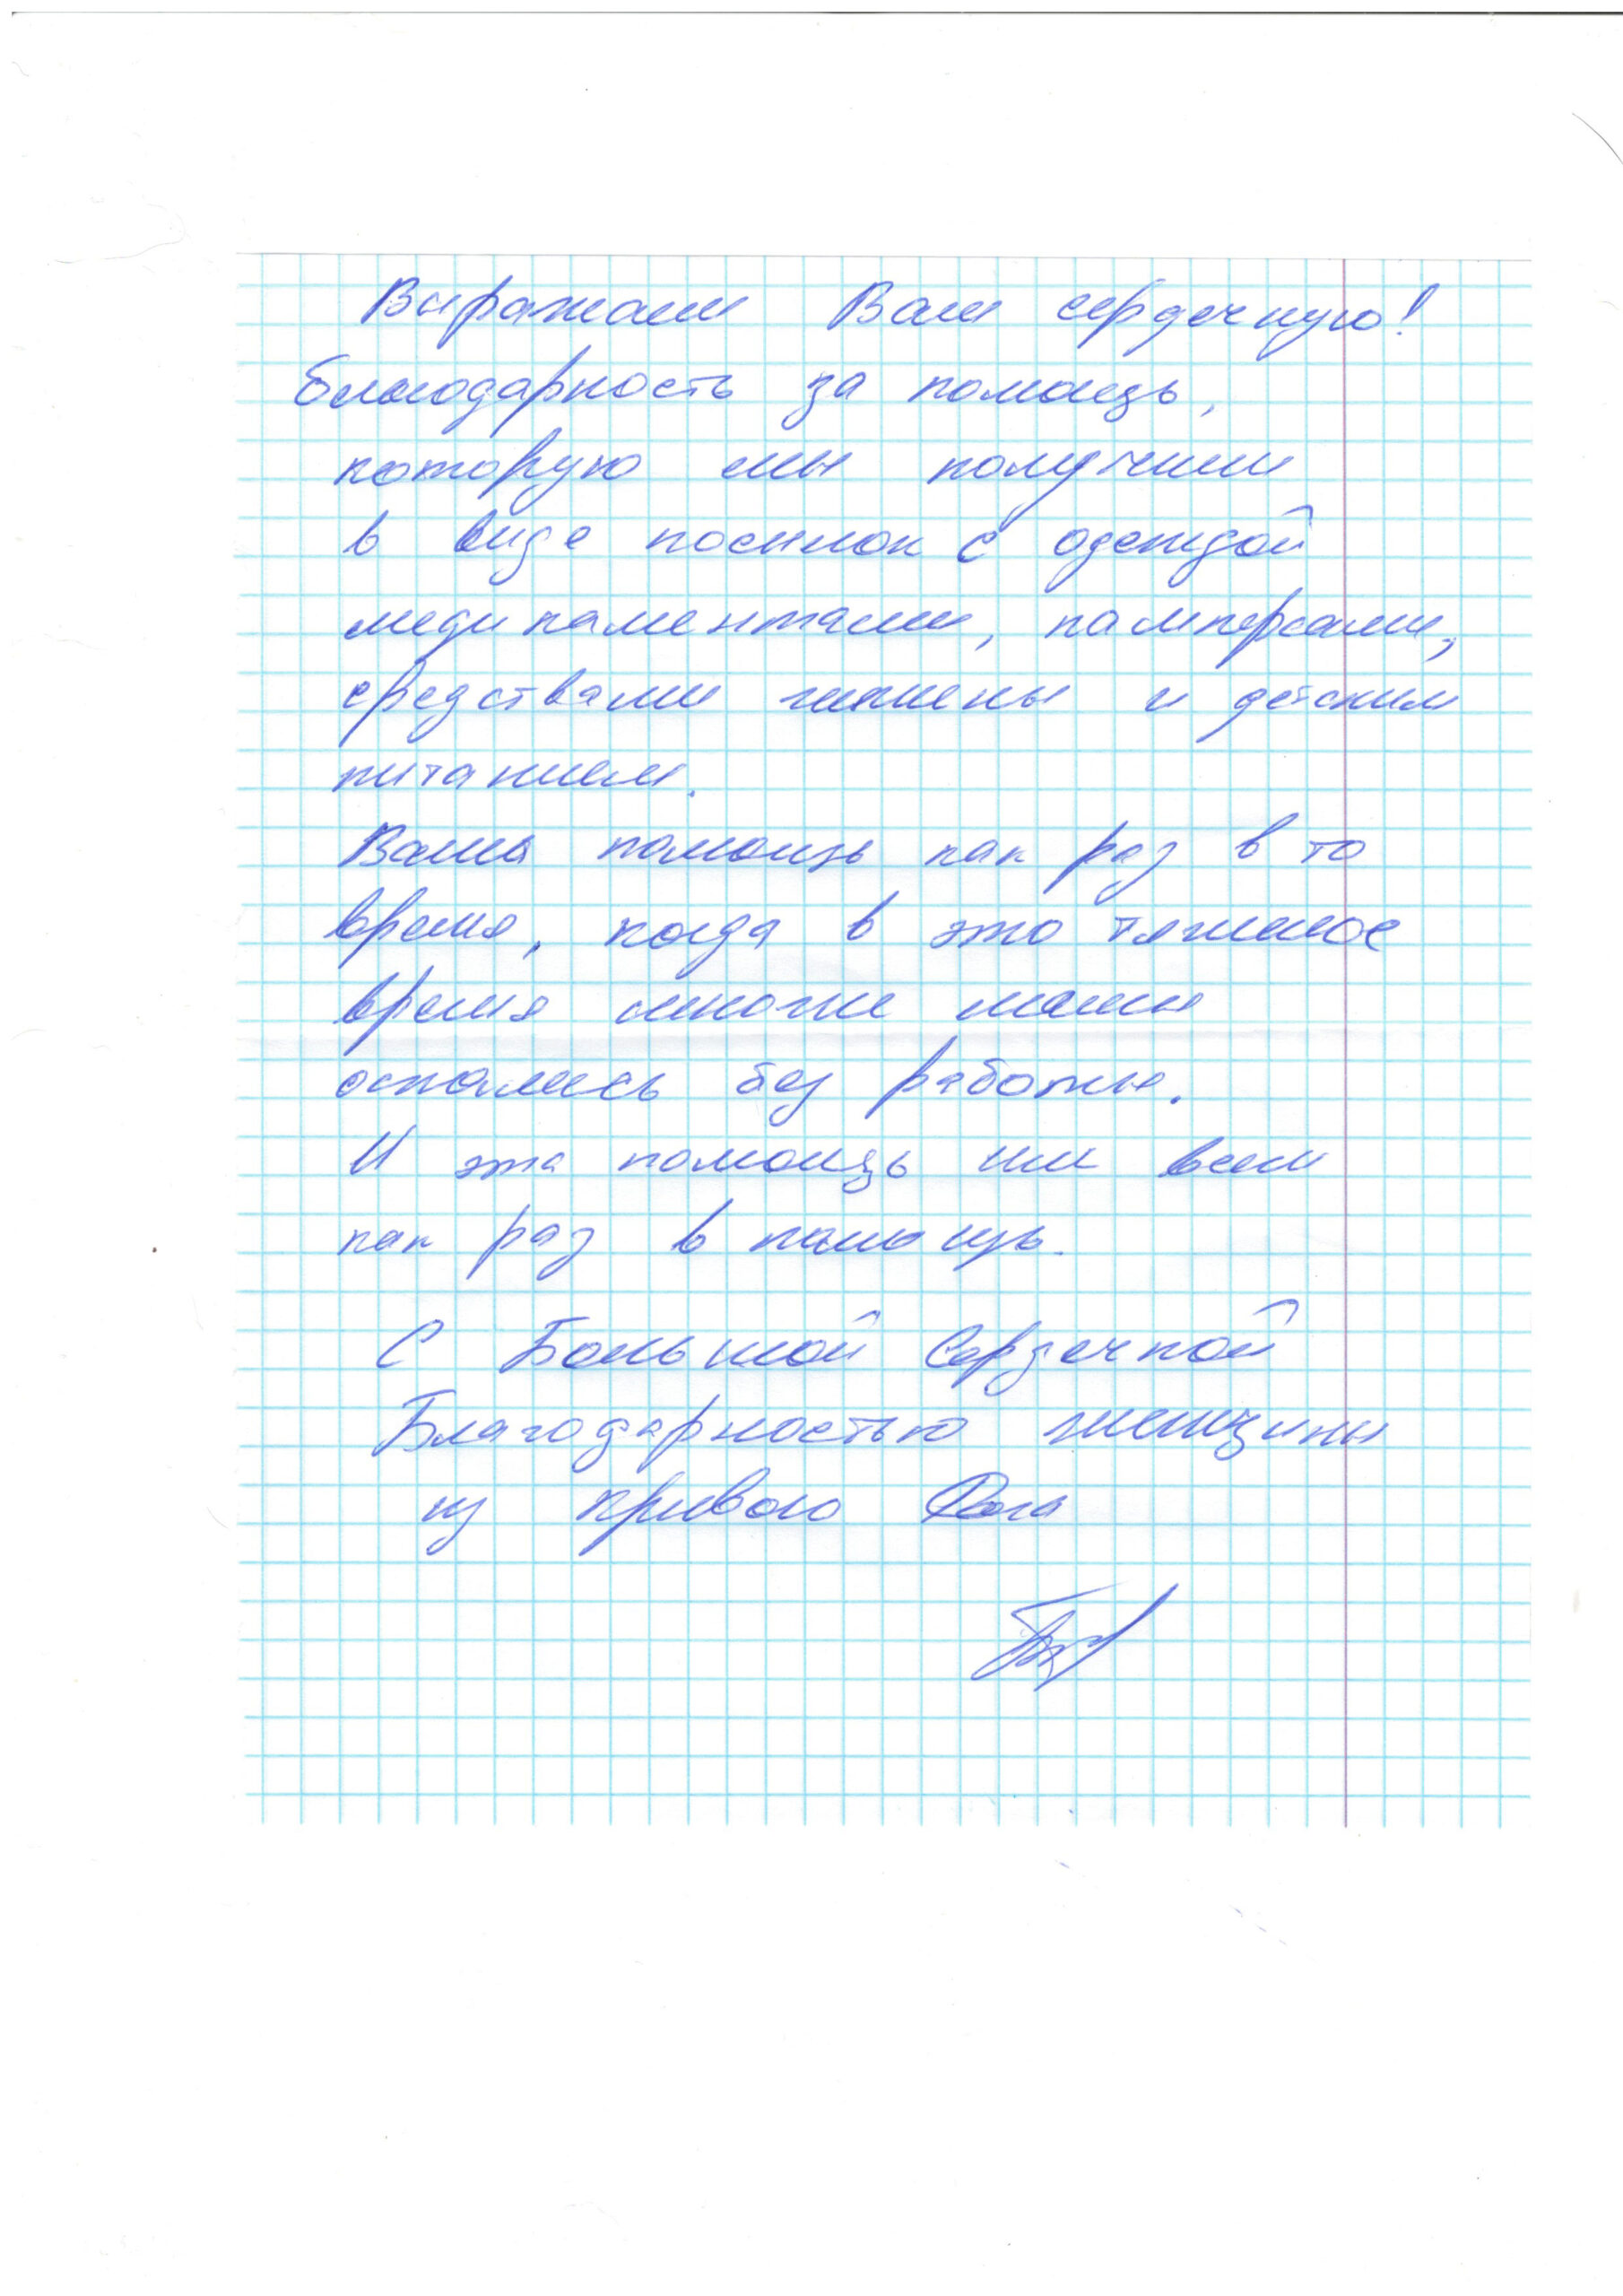 Выражаем Вам сердечную!
благодарность за помощь,
которую мы получили
в виде посылок с одеждой
медикаментами, памперсами,
средствами гигиены и детским
питанием.
Ваша помощь как раз в то
время, когда в это тяжелое
время многие мамы
остались без работы.
И эта помощь им всем
как раз в помощь.
С Большой Сердечной
Благодарностью женщины
из Кривого Рога